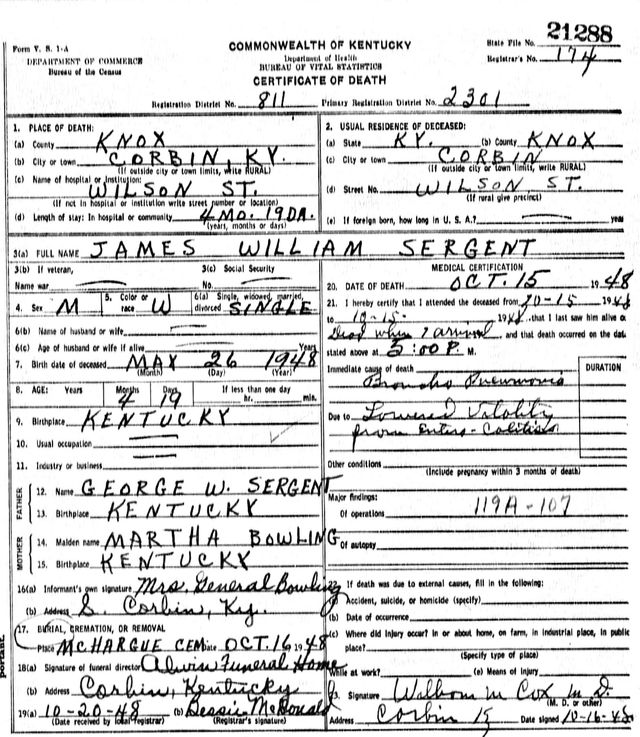 21288
Form V. S. 1-A
DEPARTMENT OF COMMERCE
Bureau of the Census
COMMONWEALTH OF KENTUCKY
Department of Health
BUREAU OF VITAL STATISTICS
CERTIFICATE OF DEATH
State File No.
Registrar's No. 174
Registration District No. 811 Primary Registration District No. 2301
1. PLACE OF DEATH:
(a) County KNOX
(b) City or town CORBIN, KY.
(If outside city or town limits, write RURAL)
(c) Name of hospital or institution:
WILSON ST.
(If not in hospital or institution write street number or location)
(d) Length of stay: In hospital or community 4 MO. 19 DA.
(years, months or days)
2. USUAL RESIDENCE OF DECEASED:
(a) State KY. (b) County KNOX
(c) City or town CORBIN
(If outside city or town limits, write RURAL)
(d) Street No. WILSON ST.
(If rural give precinct)
(e) If foreign born, how long in U. S. A.? years
3(a) FULL NAME JAMES WILLIAM SERGENT
3(b) If veteran,
Name war
3(c) Social Security
No.
4. Sex M 5. Color or race W 6(a) Single, widowed, married, divorced SINGLE
6(b) Name of husband or wife
6(c) Age of husband or wife if alive Years
7. Birth date of deceased MAY 26 1948
(Month) (Day) (Year)
8. AGE: Years Months Days If less than one day
4 19 hr. min.
9. Birthplace KENTUCKY
10. Usual occupation
11. Industry or business
FATHER
12. Name GEORGE W. SERGENT
13. Birthplace KENTUCKY
MOTHER
14. Maiden name MARTHA BOWLING
15. Birthplace KENTUCKY
16(a) Informant's own signature Mrs. General Bowling
(b) Address S. Corbin, Ky.
17. BURIAL, CREMATION, OR REMOVAL
Place MCHARGUE CEM Date OCT. 16 1948
18(a) Signature of funeral director Alvin Funeral Home
(b) Address Corbin, Kentucky
19(a) 10-20-48 (b) Bessie McDonald
(Date received by local registrar) (Registrar's signature)
MEDICAL CERTIFICATION
20. DATE OF DEATH OCT. 15 1948
21. I hereby certify that I attended the deceased from 10-15 1948
to 10-15- 1948, that I last saw him alive on
Dead when I arrived, and that death occurred on the date
stated above at 5:00 P. M.
Immediate cause of death DURATION
Broncho Pneumonia
Due to Lowered Vitality
from Entero-Colitis
Other conditions
(Include pregnancy within 3 months of death)
Major findings:
Of operations 119A-107
Of autopsy
22. If death was due to external causes, fill in the following:
(a) Accident, suicide, or homicide (specify)
(b) Date of occurrence
(c) Where did injury occur? in or about home, on farm, in industrial place, in public
place?
(Specify type of place)
While at work? (e) Means of Injury
23. Signature M. Cox M. D.
(M. D. or other)
Address Corbin Ky Date signed 10-16-48
portant.